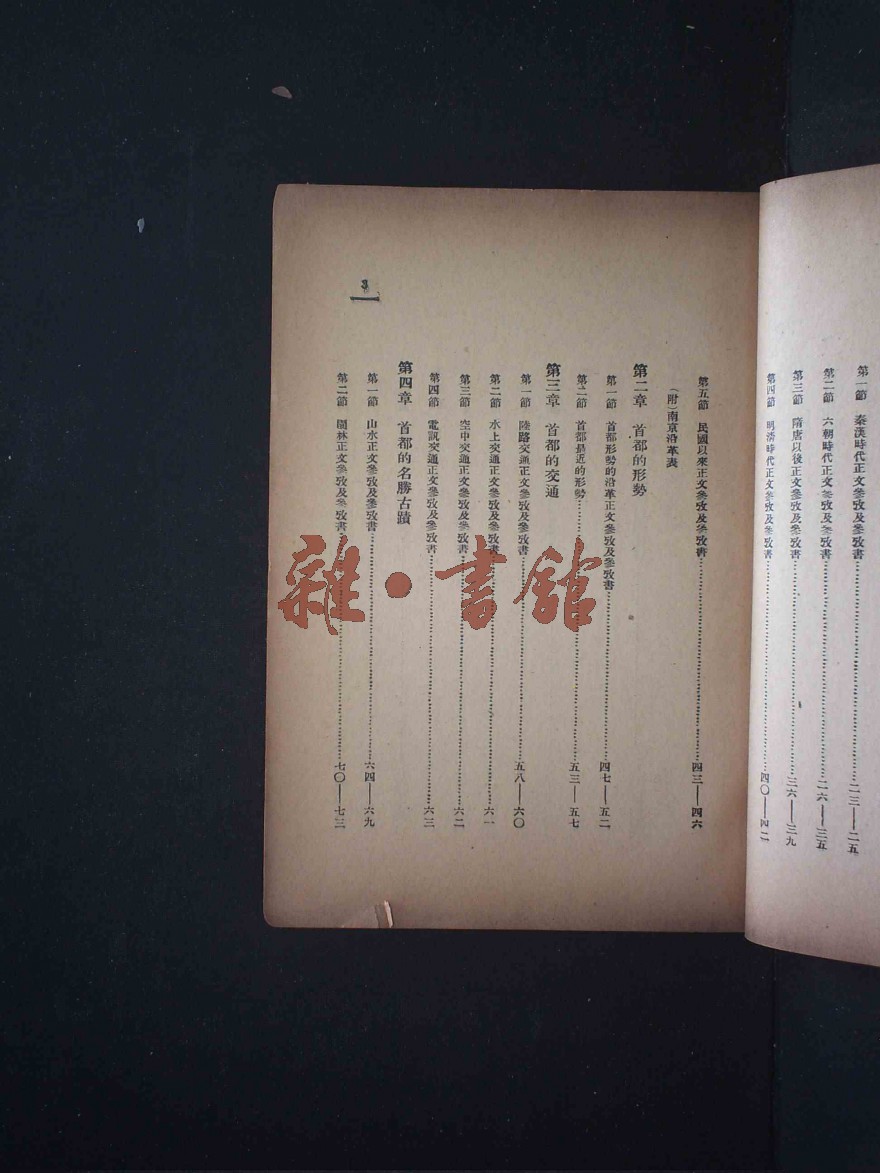 第一節　秦漢時代正文參攷及參攷書……二三——二五
第二節　六朝時代正文參攷及參攷書……二六——三五
第三節　隋唐以後正文參攷及參攷書……三六——三九
第四節　明清時代正文參攷及參攷書……四〇——四二
第五節　民國以來正文參攷及參攷書……四三——四六
（附）南京沿革表
第二章　首都的形勢
第一節　首都形勢的沿革正文參攷及參攷書……四七——五二
第二節　首都最近的形勢……五三——五七
第三章　首都的交通
第一節　陸路交通正文參攷及參攷書……五八——六〇
第二節　水上交通正文參攷及參攷書……六一
第三節　空中交通正文參攷及參攷書……六二
第四節　電訊交通正文參攷及參攷書……六三
第四章　首都的名勝古蹟
第一節　山水正文參攷及參攷書……六四——六九
第二節　園林正文參攷及參攷書……七〇——七三
3
雜·書館